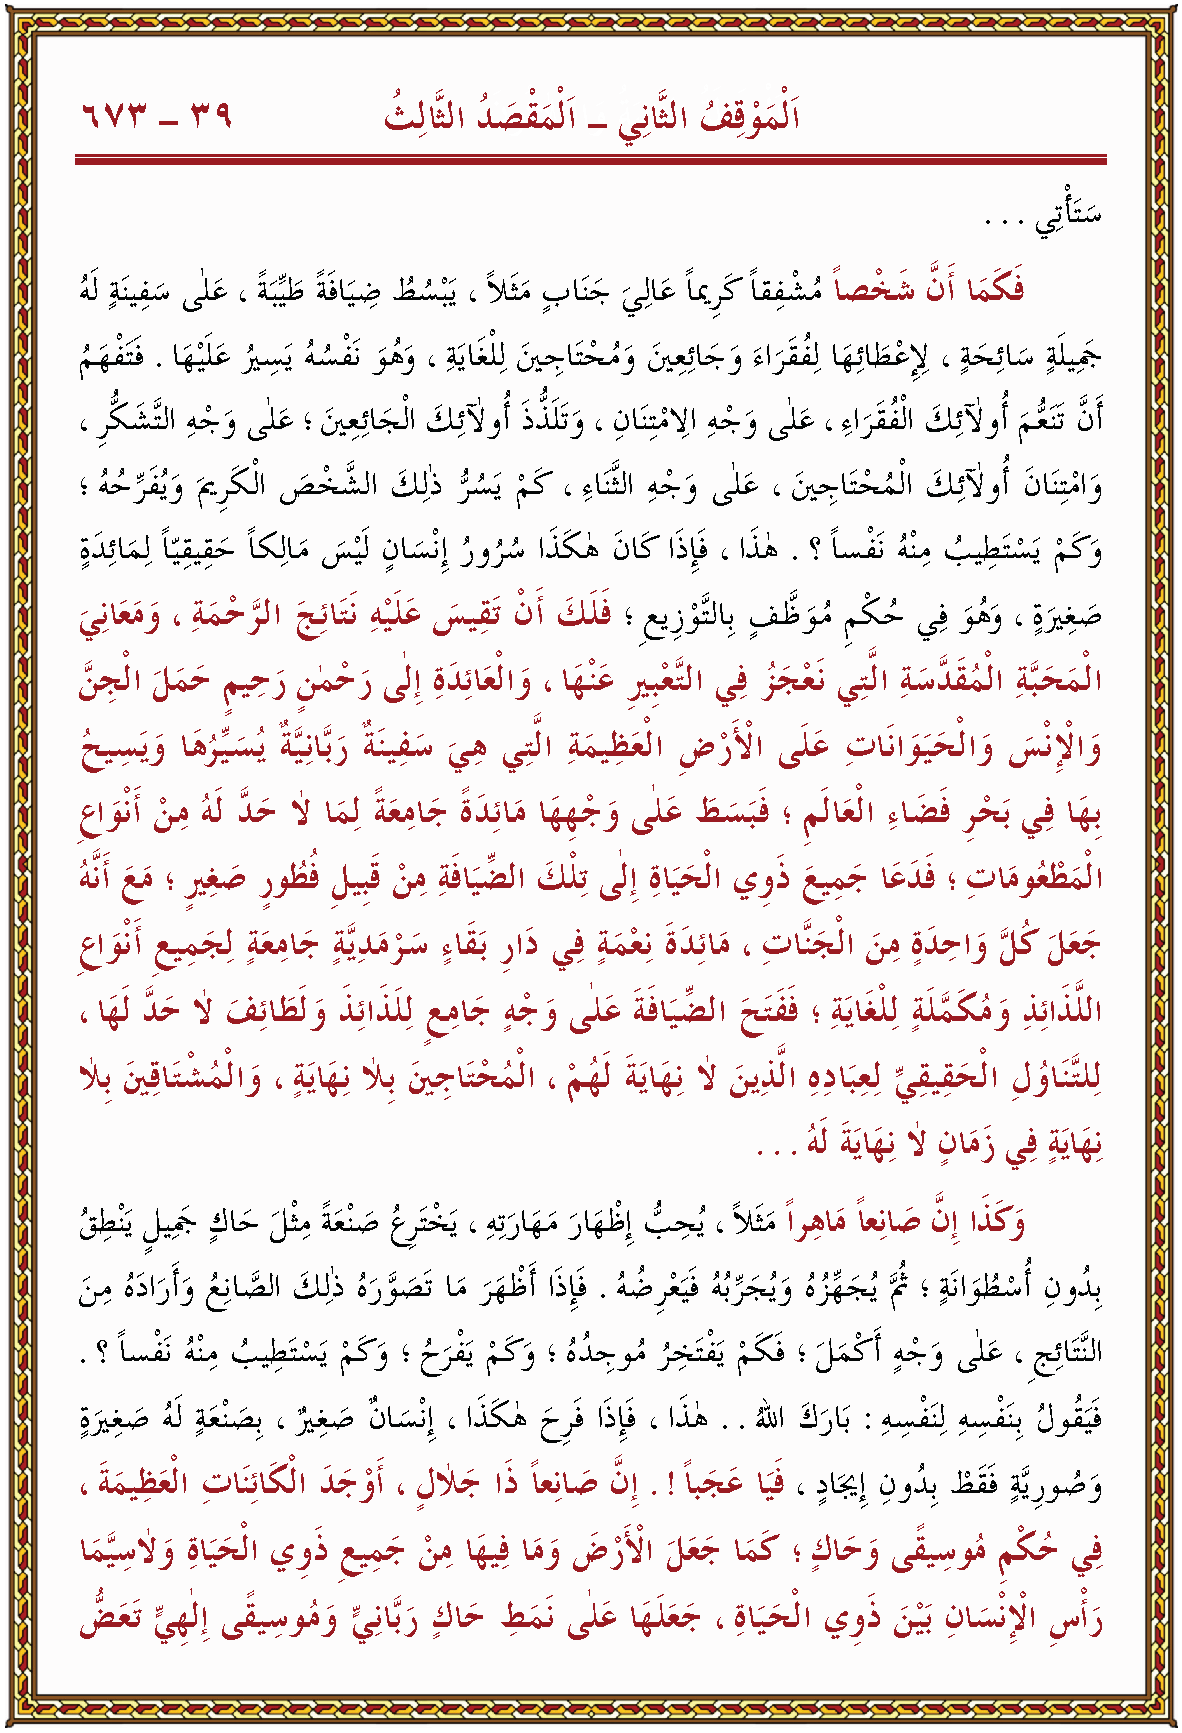 اَلْمَوْقِفُ الثَّانِي – اَلْمَقْصَدُ الثَّالِثُ ٣٩ – ٦٧٣
سَتَأْتِي . . .
فَكَمَا أَنَّ شَخْصاً مُشْفِقاً كَرِيمًا عَالِيَ جَنَابٍ مَثَلاً ، يَبْسُطُ ضِيَافَةً طَيِّبَةً ، عَلٰى سَفِينَةٍ لَهُ
جَمِيلَةٍ سَائِحَةٍ ، لِإِعْطَائِهَا لِفُقَرَاءَ وَجَائِعِينَ وَمُحْتَاجِينَ لِلْغَايَةِ ، وَهُوَ نَفْسُهُ يَسِيرُ عَلَيْهَا . فَتَفْهَمُ
أَنَّ تَنَعُّمَ أُولٰٓئِكَ الْفُقَرَاءِ ، عَلٰى وَجْهِ اِلامْتِنَانِ ، وَتَلَذُّذَ أُولٰٓئِكَ الْجَائِعِينَ ؛ عَلٰى وَجْهِ التَّشَكُّرِ ،
وَامْتِنَانَ أُولٰٓئِكَ الْمُحْتَاجِينَ ، عَلٰى وَجْهِ الثَّنَاءِ ، كَمْ يَسُرُّ ذٰلِكَ الشَّخْصَ الْكَرِيمَ وَيُفَرِّحُهُ ؛
وَكَمْ يَسْتَطِيبُ مِنْهُ نَفْساً ؟ . هٰذَا ، فَإِذَا كَانَ هٰكَذَا سُرُورُ إِنْسَانٍ لَيْسَ مَالِكاً حَقِيقِيّاً لِمَائِدَةٍ
صَغِيرَةٍ ، وَهُوَ فِي حُكْمِ مُوَظَّفٍ بِالتَّوْزِيعِ ؛ فَلَكَ أَنْ تَقِيسَ عَلَيْهِ نَتَائِجَ الرَّحْمَةِ ، وَمَعَانِيَ
الْمَحَبَّةِ الْمُقَدَّسَةِ الَّتِي نَعْجَزُ فِي التَّعْبِيرِ عَنْهَا ، وَالْعَائِدَةِ إِلٰى رَحْمٰنٍ رَحِيمٍ حَمَلَ الْجِنَّ
وَالْإِنْسَ وَالْحَيَوَانَاتِ عَلَى الْأَرْضِ الْعَظِيمَةِ الَّتِي هِيَ سَفِينَةٌ رَبَّانِيَّةٌ يُسَيِّرُهَا وَيَسِيحُ
بِهَا فِي بَحْرِ فَضَاءِ الْعَالَمِ ؛ فَبَسَطَ عَلٰى وَجْهِهَا مَائِدَةً جَامِعَةً لِمَا لَا حَدَّ لَهُ مِنْ أَنْوَاعِ
الْمَطْعُومَاتِ ؛ فَدَعَا جَمِيعَ ذَوِي الْحَيَاةِ إِلٰى تِلْكَ الضِّيَافَةِ مِنْ قَبِيلِ فُطُورٍ صَغِيرٍ ؛ مَعَ أَنَّهُ
جَعَلَ كُلَّ وَاحِدَةٍ مِنَ الْجَنَّاتِ ، مَائِدَةَ نِعْمَةٍ فِي دَارِ بَقَاءٍ سَرْمَدِيَّةٍ جَامِعَةٍ لِجَمِيعِ أَنْوَاعِ
اللَّذَائِذِ وَمُكَمَّلَةٍ لِلْغَايَةِ ؛ فَفَتَحَ الضِّيَافَةَ عَلٰى وَجْهٍ جَامِعٍ لِلَذَائِذَ وَلَطَائِفَ لَا حَدَّ لَهَا ،
لِلتَّنَاوُلِ الْحَقِيقِيِّ لِعِبَادِهِ الَّذِينَ لَا نِهَايَةَ لَهُمْ ، الْمُحْتَاجِينَ بِلَا نِهَايَةٍ ، وَالْمُشْتَاقِينَ بِلَا
نِهَايَةٍ فِي زَمَانٍ لَا نِهَايَةَ لَهُ . . .
وَكَذَا إِنَّ صَانِعاً مَاهِراً مَثَلاً ، يُحِبُّ إِظْهَارَ مَهَارَتِهِ ، يَخْتَرِعُ صَنْعَةً مِثْلَ حَاكٍ جَمِيلٍ يَنْطِقُ
بِدُونِ أُسْطُوَانَةٍ ؛ ثُمَّ يُجَهِّزُهُ وَيُجَرِّبُهُ فَيَعْرِضُهُ . فَإِذَا أَظْهَرَ مَا تَصَوَّرَهُ ذٰلِكَ الصَّانِعُ وَأَرَادَهُ مِنَ
النَّتَائِجِ ، عَلٰى وَجْهٍ أَكْمَلَ ؛ فَكَمْ يَفْتَخِرُ مُوجِدُهُ ؛ وَكَمْ يَفْرَحُ ؛ وَكَمْ يَسْتَطِيبُ مِنْهُ نَفْساً ؟ .
فَيَقُولُ بِنَفْسِهِ لِنَفْسِهِ : بَارَكَ اللهُ . . هٰذَا ، فَإِذَا فَرِحَ هٰكَذَا ، إِنْسَانٌ صَغِيرٌ ، بِصَنْعَةٍ لَهُ صَغِيرَةٍ
وَصُورِيَّةٍ فَقَطْ بِدُونِ إِيجَادٍ ، فَيَا عَجَباً ! . إِنَّ صَانِعاً ذَا جَلَالٍ ، أَوْجَدَ الْكَائِنَاتِ الْعَظِيمَةَ ،
فِي حُكْمِ مُوسِيقًى وَحَاكٍ ؛ كَمَا جَعَلَ الْأَرْضَ وَمَا فِيهَا مِنْ جَمِيعِ ذَوِي الْحَيَاةِ وَلَاسِيَّمَا
رَأْسِ الْإِنْسَانِ بَيْنَ ذَوِي الْحَيَاةِ ، جَعَلَهَا عَلٰى نَمَطِ حَاكٍ رَبَّانِيٍّ وَمُوسِيقًى إِلٰهِيٍّ تَعَضُّ